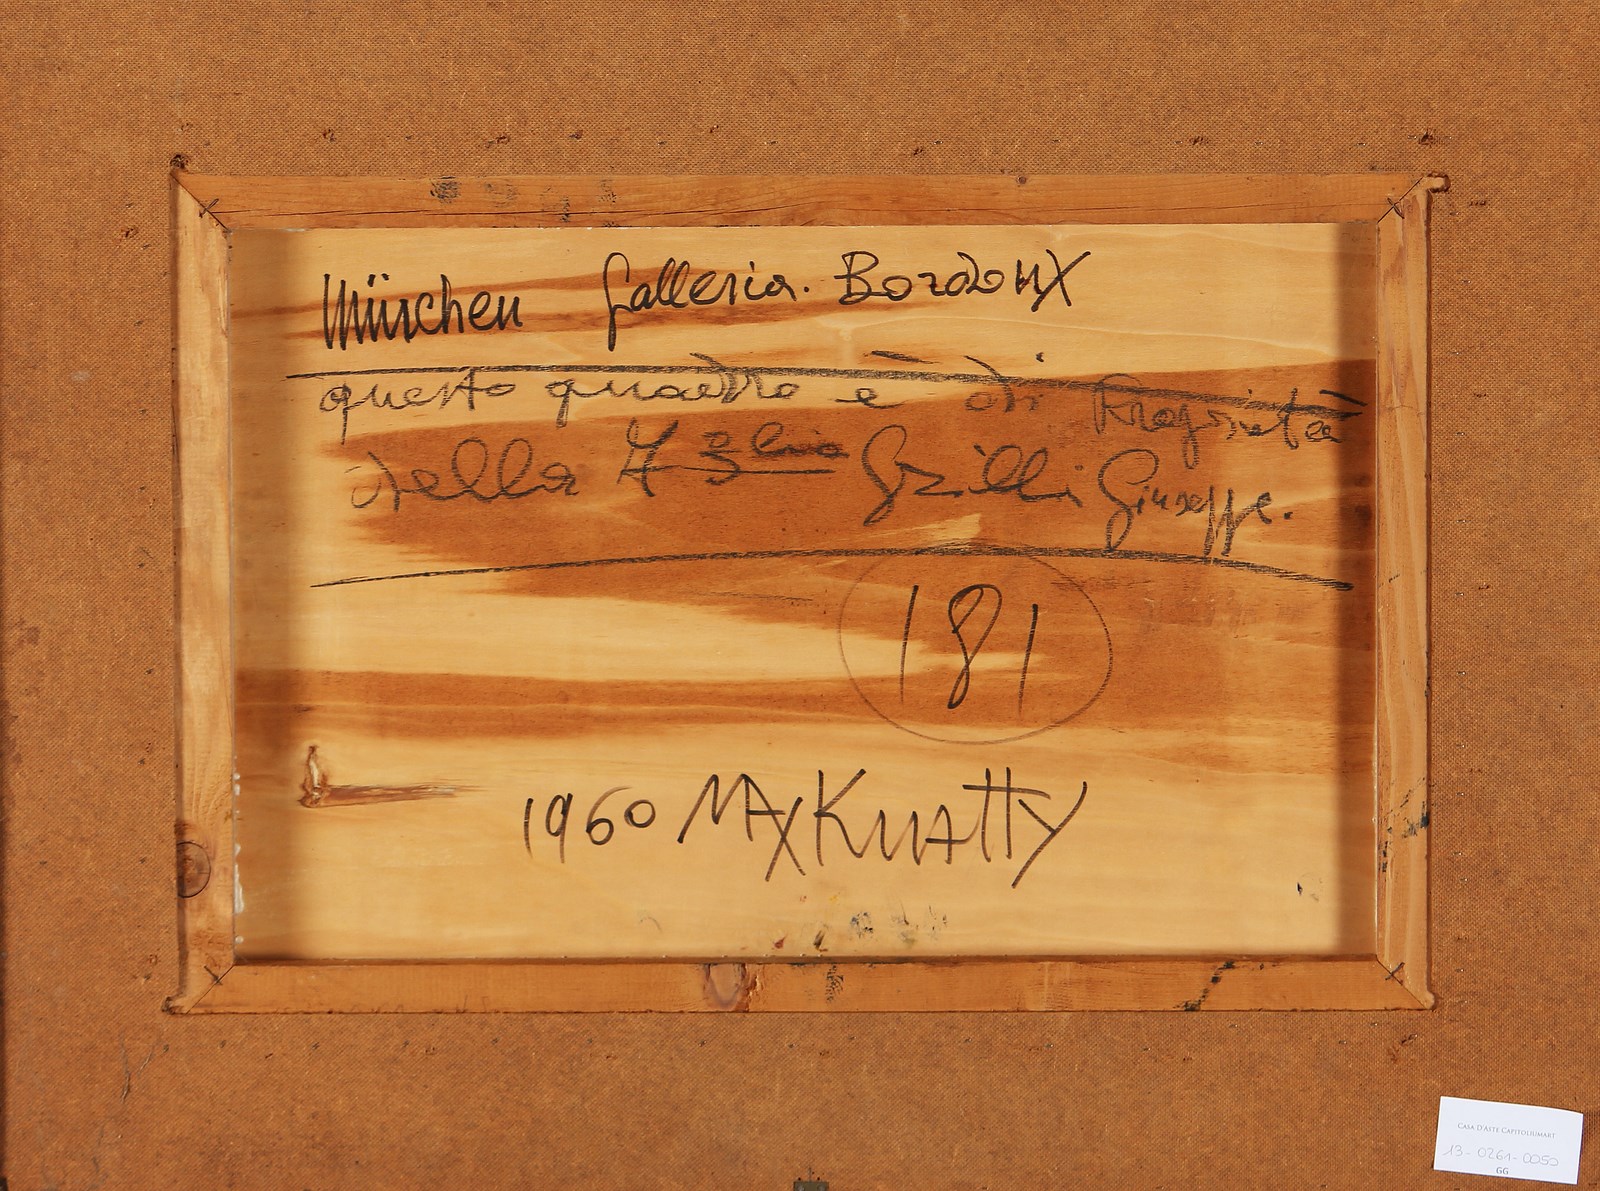 München Galleria. Bordoux
questo quadro è di Proprietà
della Grilli Giuseppe.
181
1960 MAX KNATTY
CASA D'ASTE CAPITOLIUMART
13-0261-0050
GG